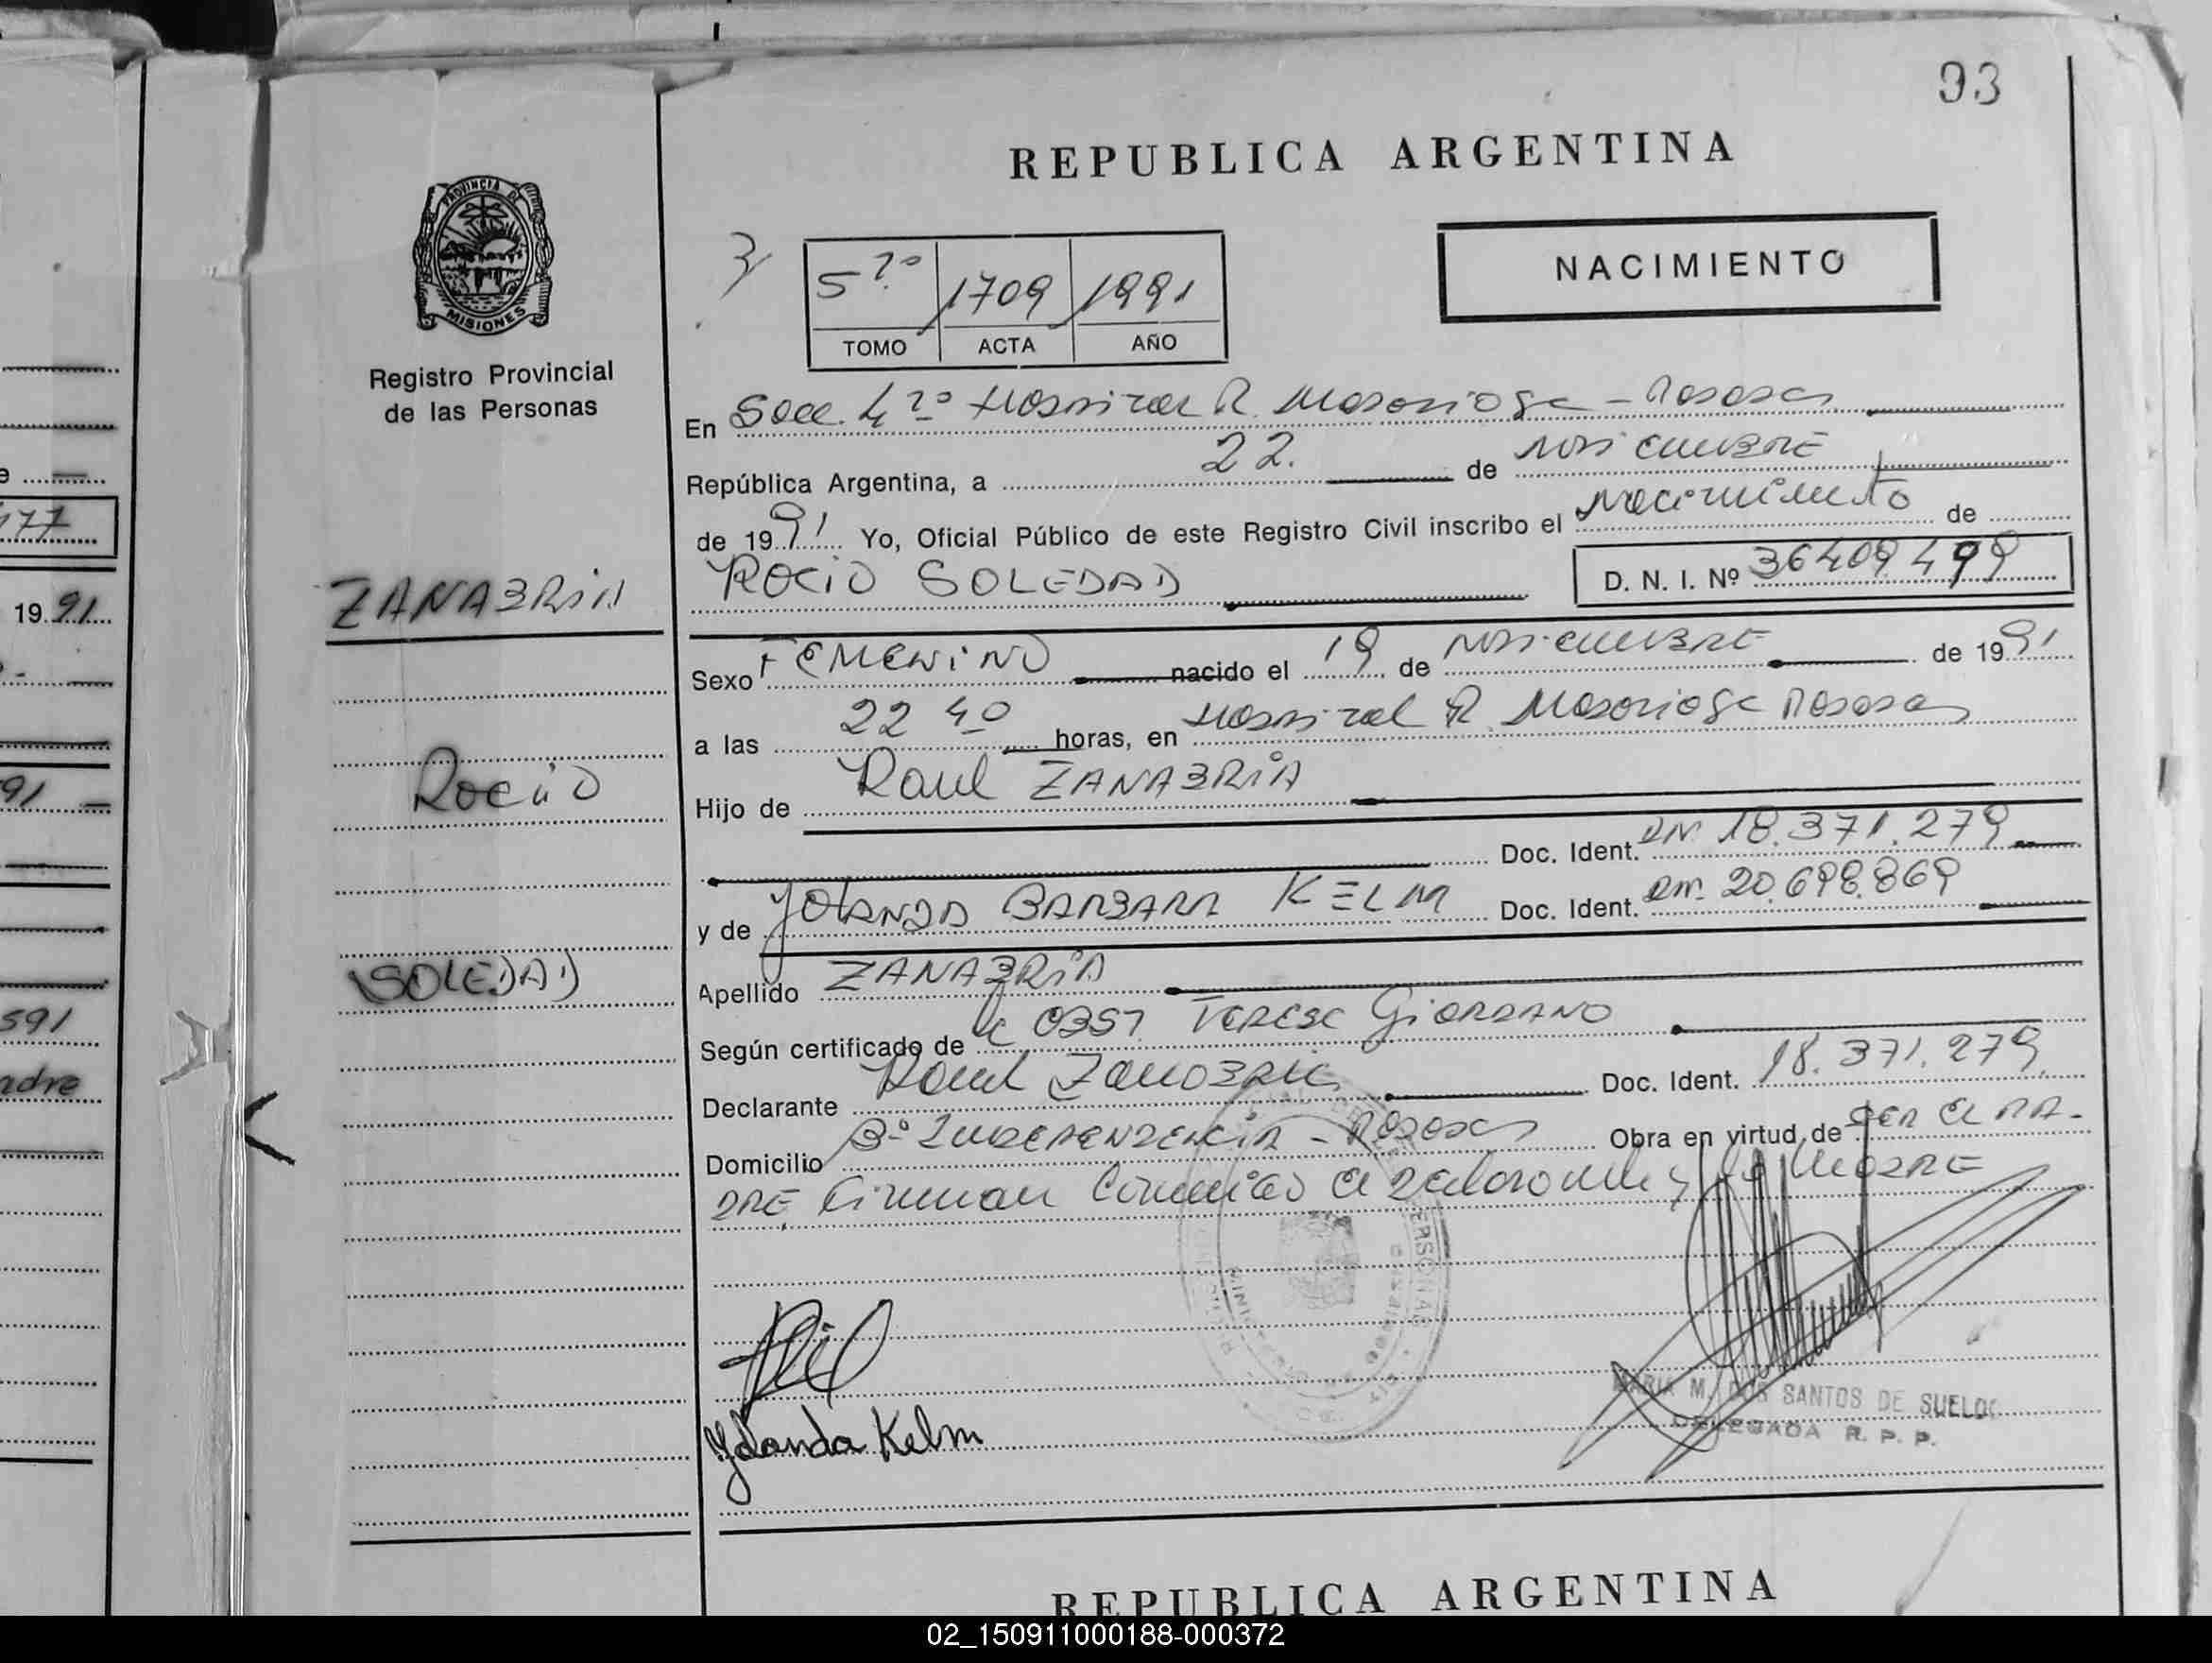 93
REPUBLICA ARGENTINA
PROVINCIA DE
MISIONES
Registro Provincial
de las Personas
NACIMIENTO
5to 1709 1991
TOMO ACTA AÑO
En Secc. 4to Hospital R. Madariaga - Posadas
República Argentina, a 22. de Noviembre
de 1991 Yo, Oficial Público de este Registro Civil inscribo el Nacimiento de
ROCIO SOLEDAD D. N. I. Nº 36409.499
ZANABRIA
Rocio
SOLEDAD
Sexo FEMENINO nacido el 19 de Noviembre de 1991
a las 22 40 horas, en Hospital R. Madariaga Posadas
Hijo de Raul ZANABRIA
Doc. Ident. DNI. 18.371.279
y de YOLANDA BARBARA KELM Doc. Ident. DNI. 20.698.869
Apellido ZANABRIA
Según certificado de la OBST. Teresa Giordano
Declarante Raul Zanabria Doc. Ident. 18.371.279
Domicilio Bº Independencia - Posadas Obra en virtud de ser el PA-
DRE, Firman Conmigo el declarante y la Madre
Yolanda Kelm
MARIA M. DOS SANTOS DE SUELDO
DELEGADA R. P. P.
REPUBLICA ARGENTINA
177
1991
91
591
adre
02_150911000188-000372